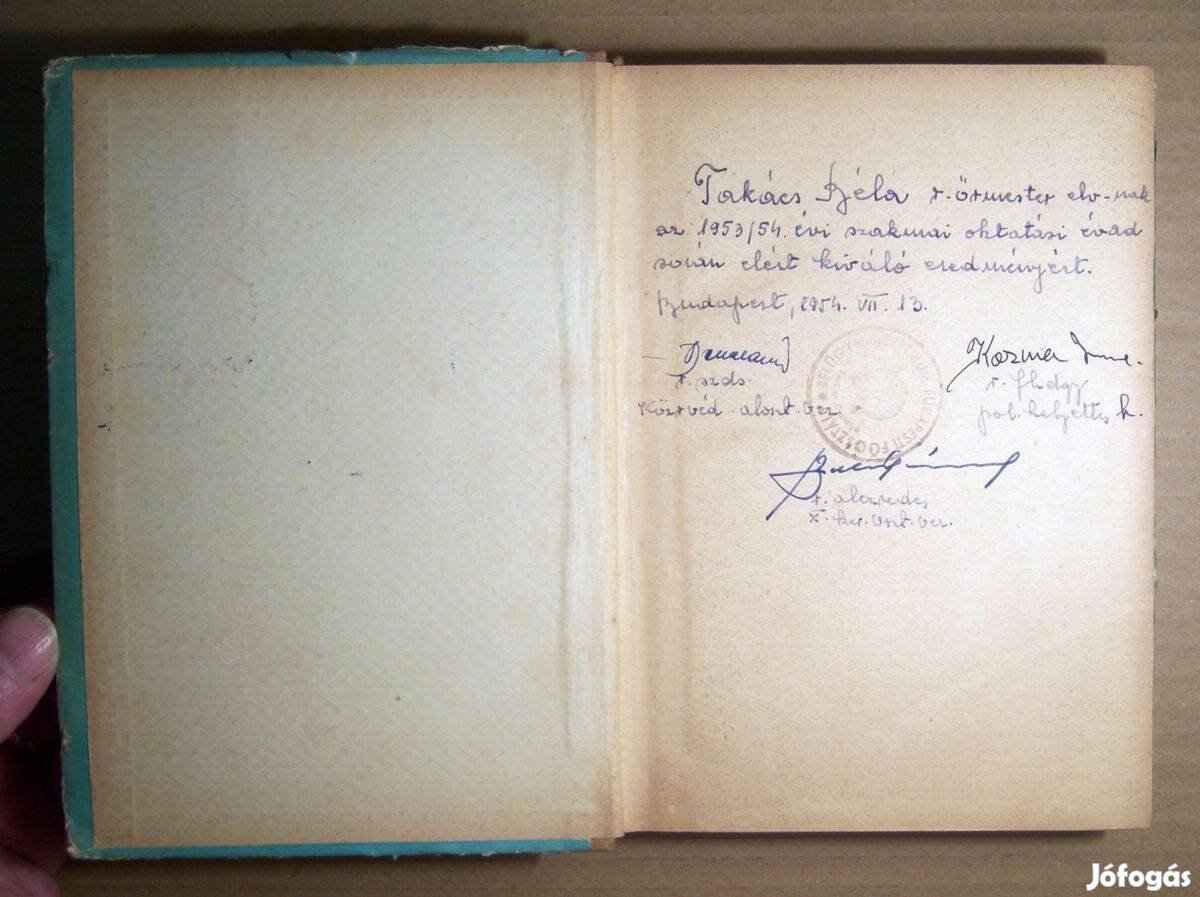 Takács Béla r. örmester elv-nak
az 1953/54. évi szakmai oktatási évad
során elért kiváló eredményért.
Budapest, 1954. VII. 13.
Kozma Imre
r. szds.
r. fhdgy
Közrvéd. aloszt. vez.
pol. helyettes h.
BELÜGYMINISZTÉRIUM BUDAPESTI FŐOSZTÁLY
r. alezredes
X. ker. Oszt. vez.
Jófogás